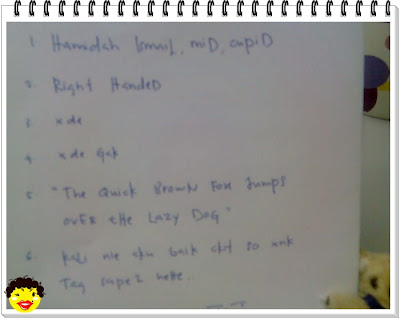 1. Hamidah Ismail, miD, cupiD
2. Right HandeD
3. xde
4. xde gak
5. "The Quick Brown Fox Jumps
ovER tHe Lazy Dog"
6. kali nie aku baik ckit so xnk
Tag sape2 hehe..